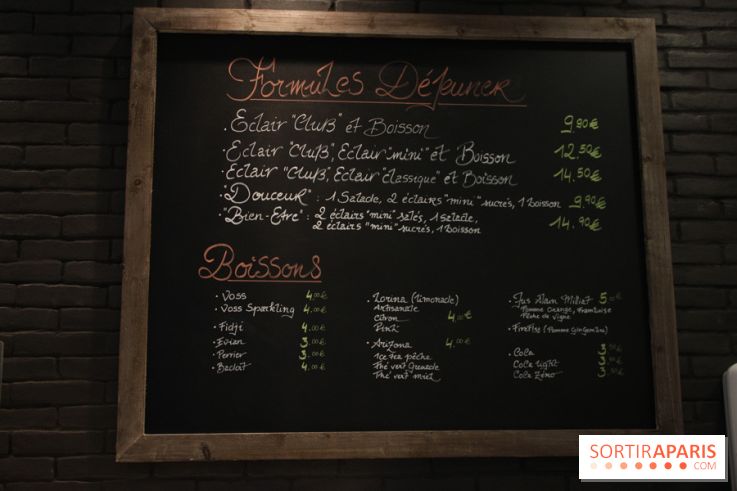 Formules Déjeuner
. Eclair "Club" et Boisson 9,90€
. Eclair "Club", Eclair "mini" et Boisson 12,50€
. Eclair "Club", Eclair "classique" et Boisson 14,50€
. "Douceur" : 1 Salade, 2 éclairs "mini" sucrés, 1 boisson 9,90€
. "Bien-Etre" : 2 éclairs "mini" salés, 1 salade, 14,90€
2 éclairs "mini" sucrés, 1 Boisson
Boissons
. Voss 4,00€
. Voss Sparkling 4,00€
. Fidji 4,00€
. Evian 3,00€
. Perrier 3,00€
. Badoit 4,00€
. Lorina (limonade)
Artisanale
Citron 4,00€
Pink
. Arizona 4,00€
Ice tea pêche
Thé vert Grenade
Thé vert miel
. Jus Alain Milliat 5,00€
Pomme Orange, Framboise
Pêche de vigne
. (Pomme Gingembre)
. Coca
Coca light
Coca Zéro
SORTIRAPARIS
.COM